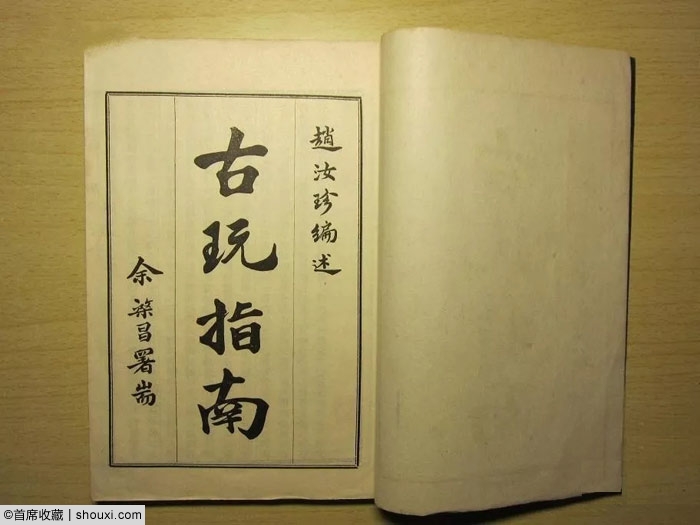 趙汝珍編述
古玩指南
余棨昌署耑
©首席收藏 | shouxi.com